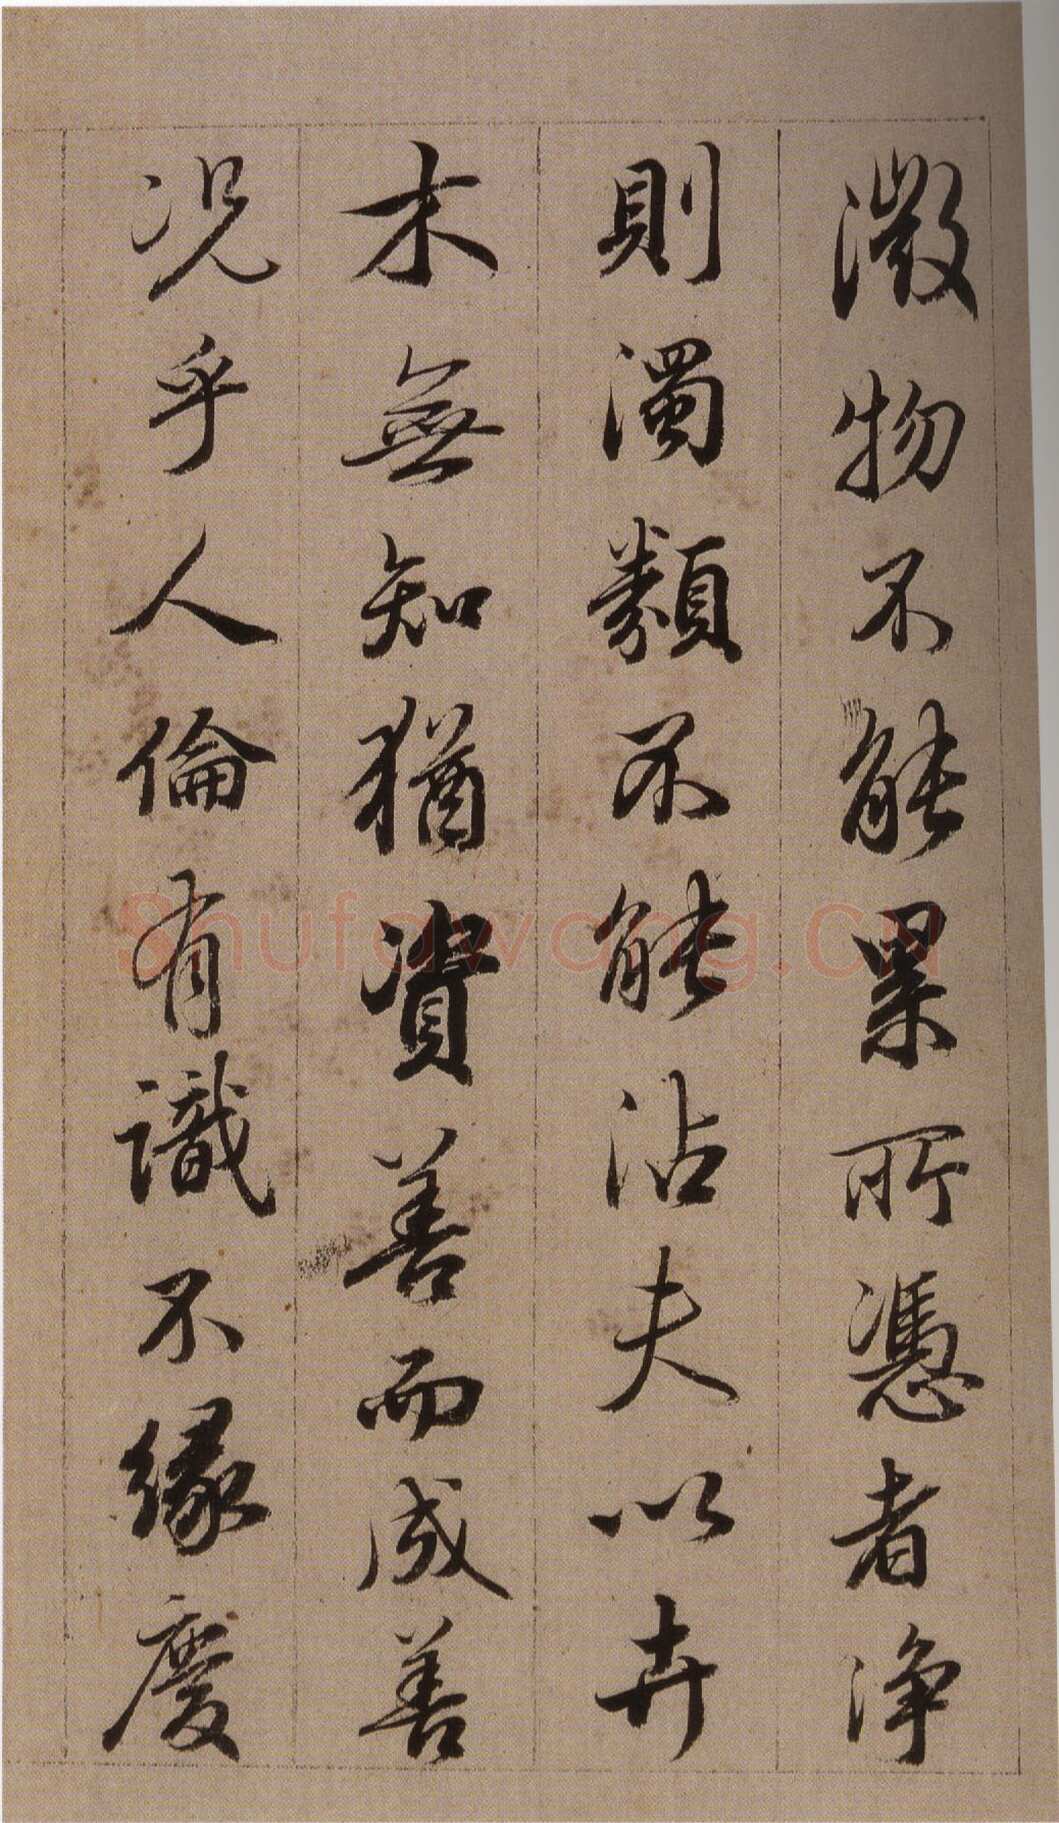 微物不能累所憑者浄
則濁類不能沾夫以卉
木無知猶資善而成善
况乎人倫有識不緣慶
Shufawang.CN